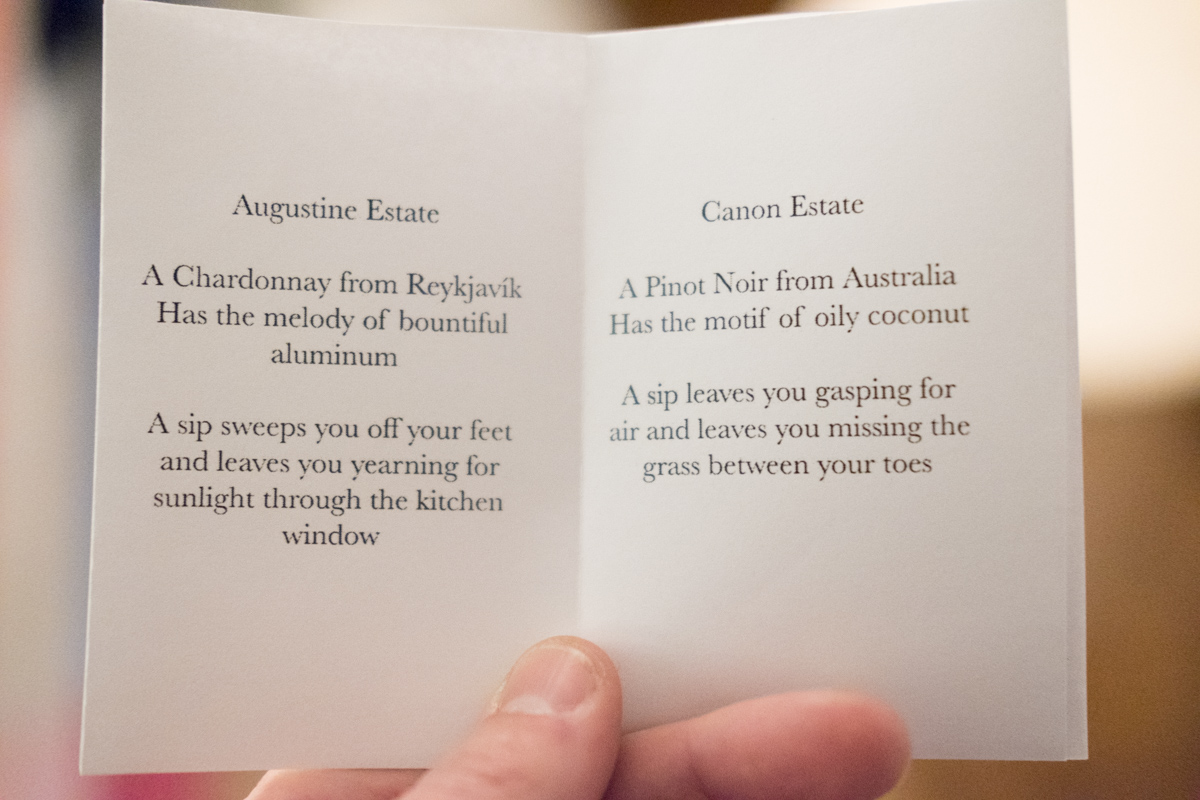 Augustine Estate
A Chardonnay from Reykjavík
Has the melody of bountiful
aluminum
A sip sweeps you off your feet
and leaves you yearning for
sunlight through the kitchen
window
Canon Estate
A Pinot Noir from Australia
Has the motif of oily coconut
A sip leaves you gasping for
air and leaves you missing the
grass between your toes